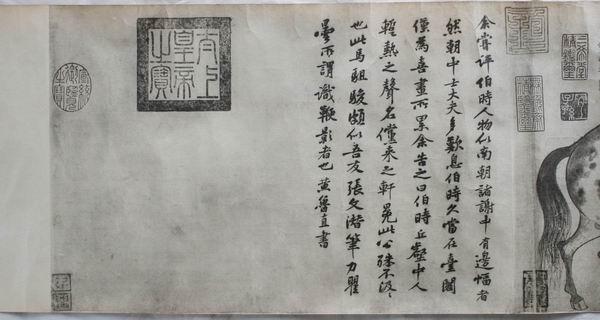 三希堂精鑑璽
宜子孫
余嘗評伯時人物似南朝諸謝中有邊幅者
然朝中士大夫多歎息伯時久當在臺閣
僅為喜畫所累余告之曰伯時丘壑中人
暫熱之聲名儻來之軒冕此公殊不汲〻
也此馬駔駿頗似吾友張文潛筆力瞿
曇所謂識鞭影者也黃魯直書
太上皇帝之寶